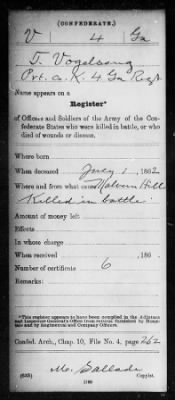 (CONFEDERATE.)
V 4 Ga
T. Vogelsang
Pvt. Co. K. 4 Ga Regt
Name appears on a
Register*
of Officers and Soldiers of the Army of the Con-
federate States who were killed in battle, or who
died of wounds or disease.
Where born
When deceased July 1, 1862
Where and from what cause Malvern Hill
Killed in battle.
Amount of money left
Effects
In whose charge
When received , 186 .
Number of certificate 6
Remarks:
*This register appears to have been compiled in the Adjutant
and Inspector General's Office from returns furnished by Hospi-
tals and by Regimental and Company Officers.
Confed. Arch., Chap. 10, File No. 4, page 262
(635)
Copyist.